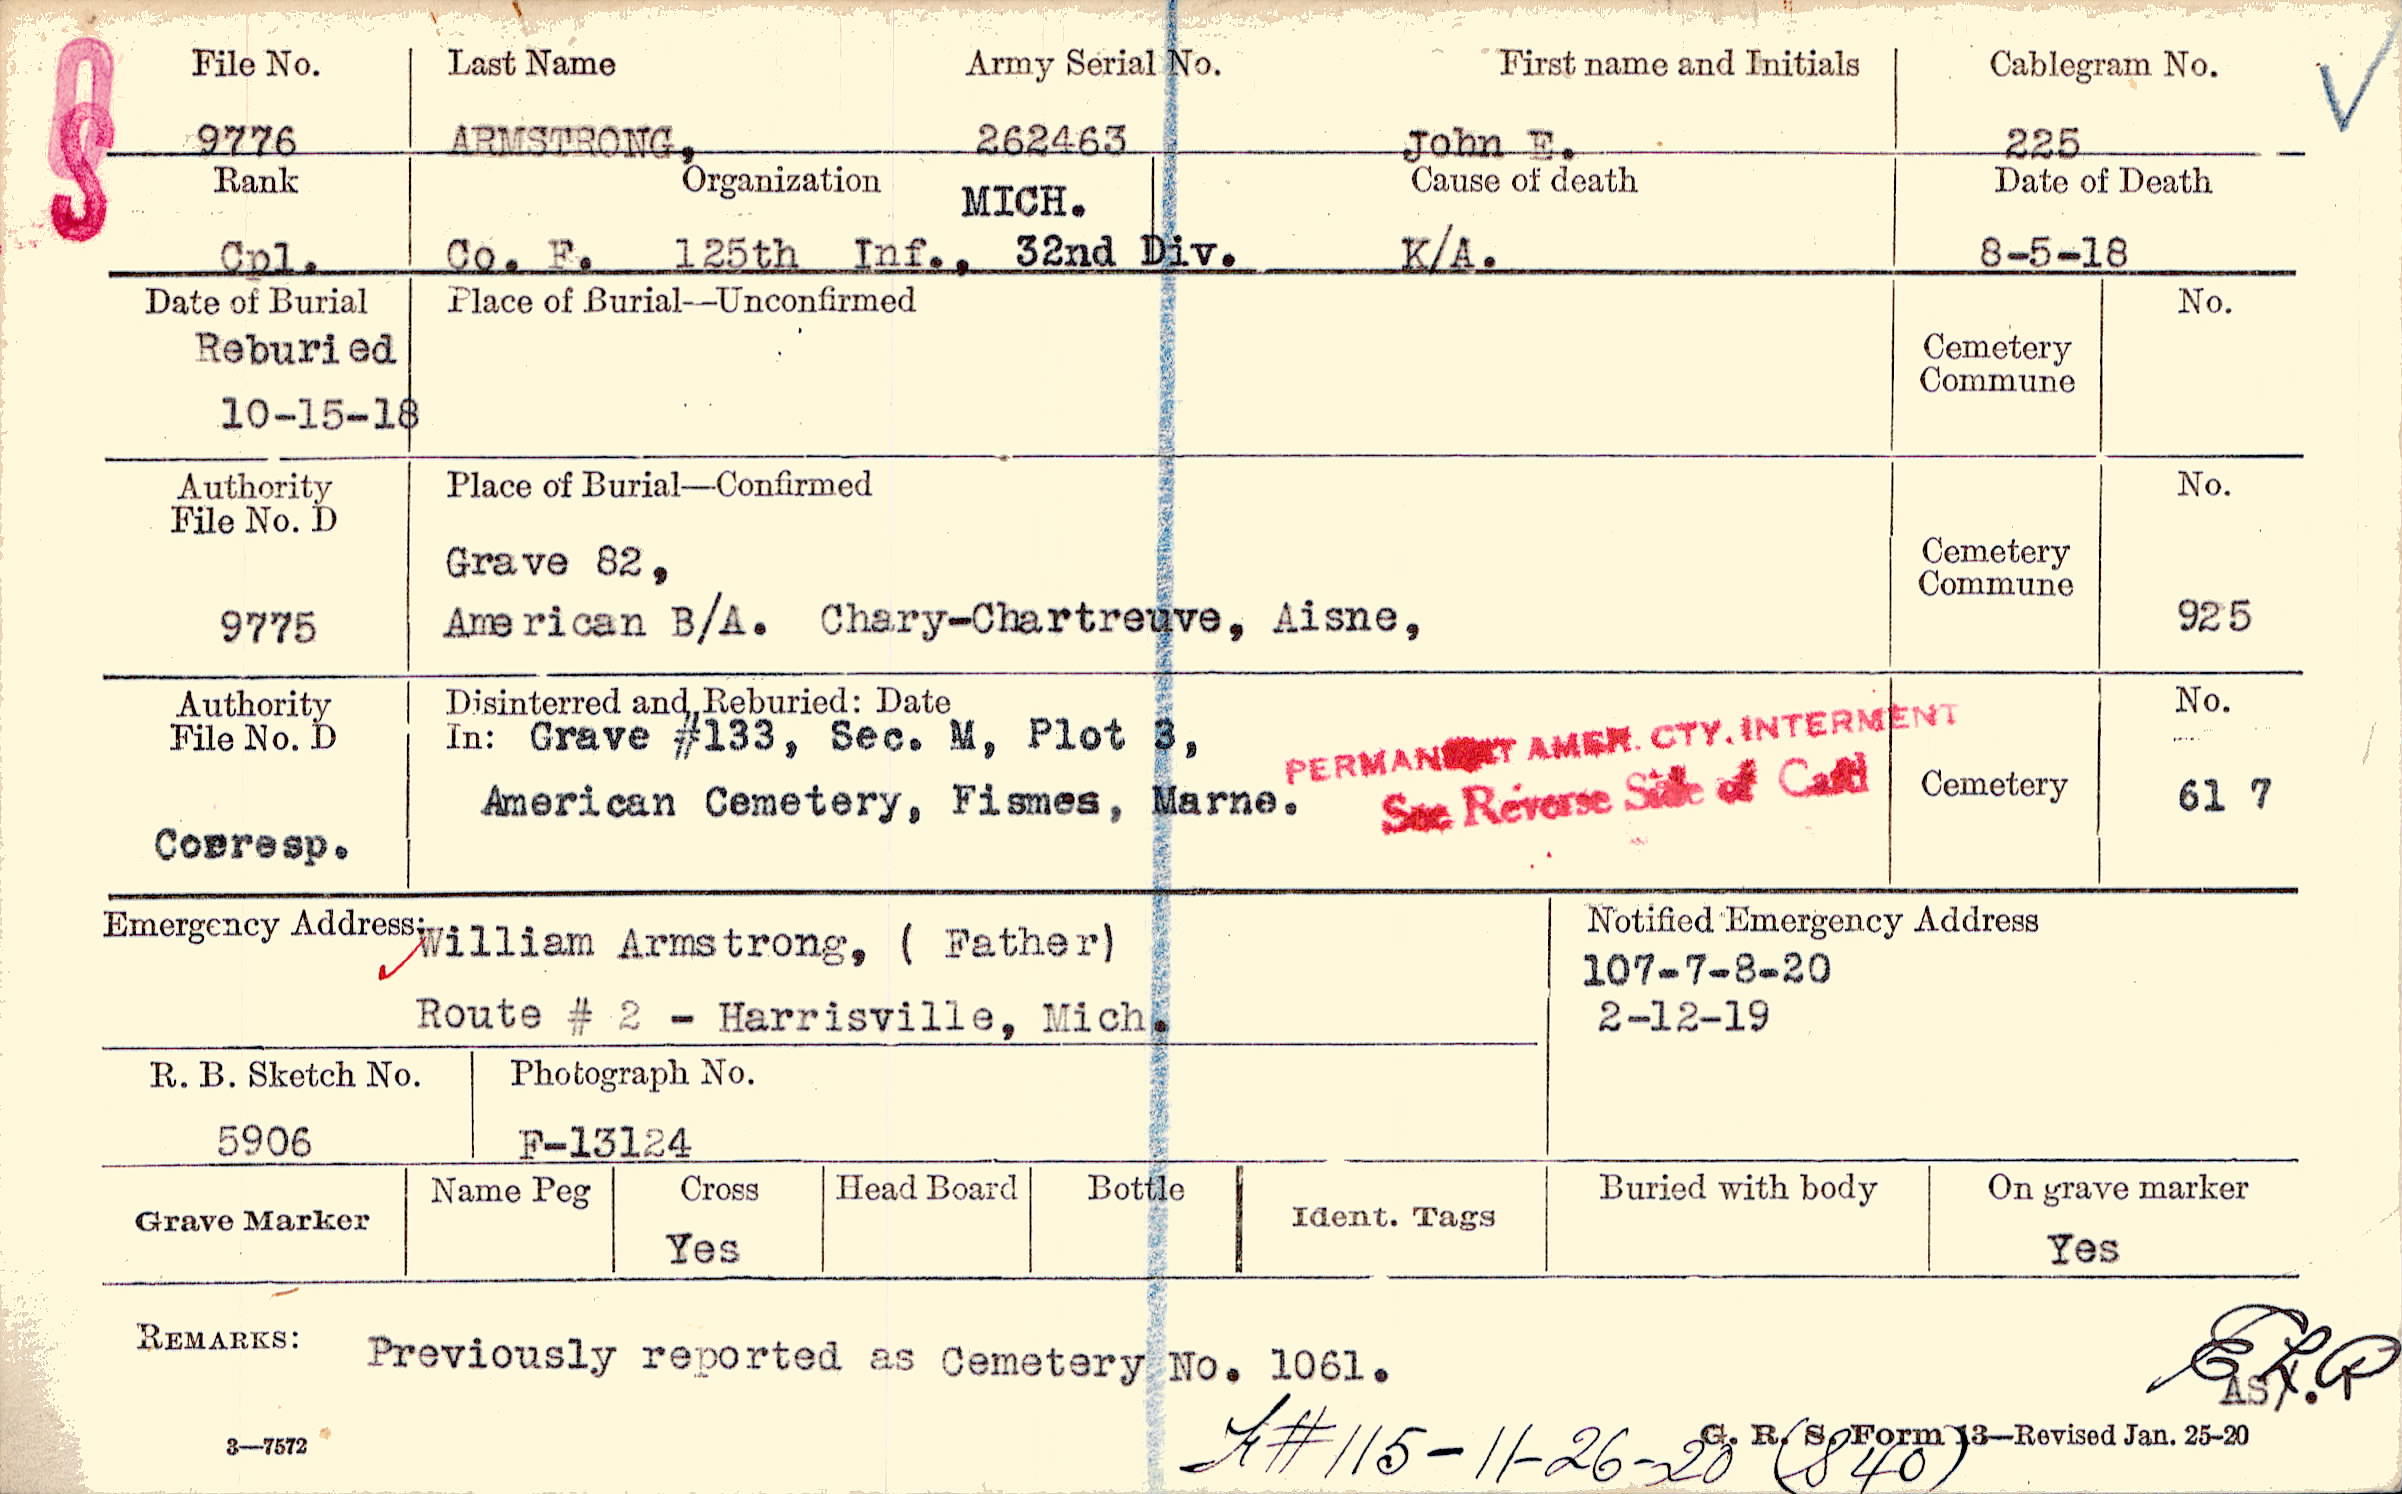 File No. Last Name Army Serial No. First name and Initials Cablegram No.
9776 ARMSTRONG, 262463 John E. 225
Rank Organization Cause of death Date of Death
MICH.
Cpl. Co. F. 125th Inf., 32nd Div. K/A. 8-5-18
Date of Burial Place of Burial—Unconfirmed No.
Reburied Cemetery
Commune
10-15-18
Authority Place of Burial—Confirmed No.
File No. D
Grave 82, Cemetery
Commune
9775 American B/A. Chary-Chartreuve, Aisne, 925
Authority Disinterred and Reburied: Date No.
File No. D In: Grave #133, Sec. M, Plot 3,
PERMANENT AMER. CTY. INTERMENT
American Cemetery, Fismes, Marne. Cemetery 61 7
See Reverse Side of Card
Corresp.
Emergency Address: William Armstrong, ( Father) Notified Emergency Address
107-7-8-20
Route # 2 - Harrisville, Mich. 2-12-19
R. B. Sketch No. Photograph No.
5906 F-13124
Grave Marker Name Peg Cross Head Board Bottle Ident. Tags Buried with body On grave marker
Yes Yes
REMARKS: Previously reported as Cemetery No. 1061.
3—7572 G. R. S. Form 13—Revised Jan. 25-20
#115-11-26-20 (840)